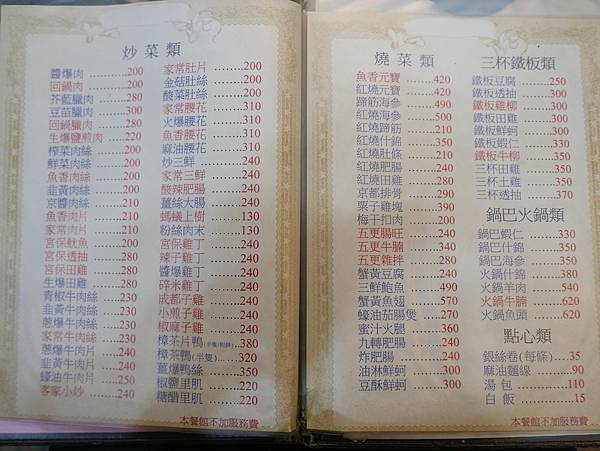 炒菜類
醬爆肉 200
回鍋肉 200
芥藍臘肉 280
豆苗臘肉 300
回鍋臘肉 280
生爆鹽煎肉 220
榨菜肉絲 200
鮮菜肉絲 200
魚香肉絲 200
韭黃肉絲 200
京醬肉絲 210
魚香肉片 210
家常肉片 210
宮保魷魚 200
宮保透抽 280
宮保田雞 280
生爆田雞 280
青椒牛肉絲 230
韭黃牛肉絲 230
蔥爆牛肉絲 230
家常牛肉絲 230
蔥爆牛肉片 240
韭黃牛肉片 240
蠔油牛肉片 250
客家小炒 240
家常肚片 200
金菇肚絲 200
酸菜肚絲 200
家常腰花 310
火爆腰花 310
魚香腰花 310
麻油腰花 310
炒三鮮 240
家常三鮮 240
酸辣肥腸 240
薑絲大腸 240
螞蟻上樹 130
粉絲肉末 130
宮保雞丁 240
辣子雞丁 240
醬爆雞丁 240
碎米雞丁 240
成都子雞 240
小煎子雞 240
椒麻子雞 240
樟茶片鴨 380
樟茶鴨(半隻) 320
薑爆鴨絲 350
椒鹽里肌 220
糖醋里肌 220
本餐館不加服務費
燒菜類
魚香元寶 420
紅燒元寶 420
蹄筋海參 490
紅燒海參 500
紅燒蹄筋 210
紅燒什錦 350
紅燒肚條 210
紅燒肥腸 240
紅燒田雞 280
京都排骨 290
栗子雞塊 390
梅干扣肉 200
五更腸旺 240
五更牛腩 340
五更雜拌 280
蟹黃豆腐 240
三鮮鮑魚 490
蟹黃魚翅 570
蠔油茄腸煲 270
蜜汁火腿 360
九轉肥腸 240
炸肥腸 240
油淋鮮蚵 300
豆酥鮮蚵 300
三杯鐵板類
鐵板豆腐 250
鐵板透抽 300
鐵板雞柳 300
鐵板田雞 300
鐵板鮮蚵 300
鐵板蝦仁 330
鐵板牛柳 350
三杯田雞 350
三杯土雞 350
三杯透抽 370
鍋巴火鍋類
鍋巴蝦仁 330
鍋巴什錦 350
鍋巴海參 350
火鍋什錦 380
火鍋羊肉 540
火鍋牛腩 620
火鍋魚頭 620
點心類
銀絲卷(每條) 35
麻油麵線 90
湯包 110
白飯 15
本餐館不加服務費